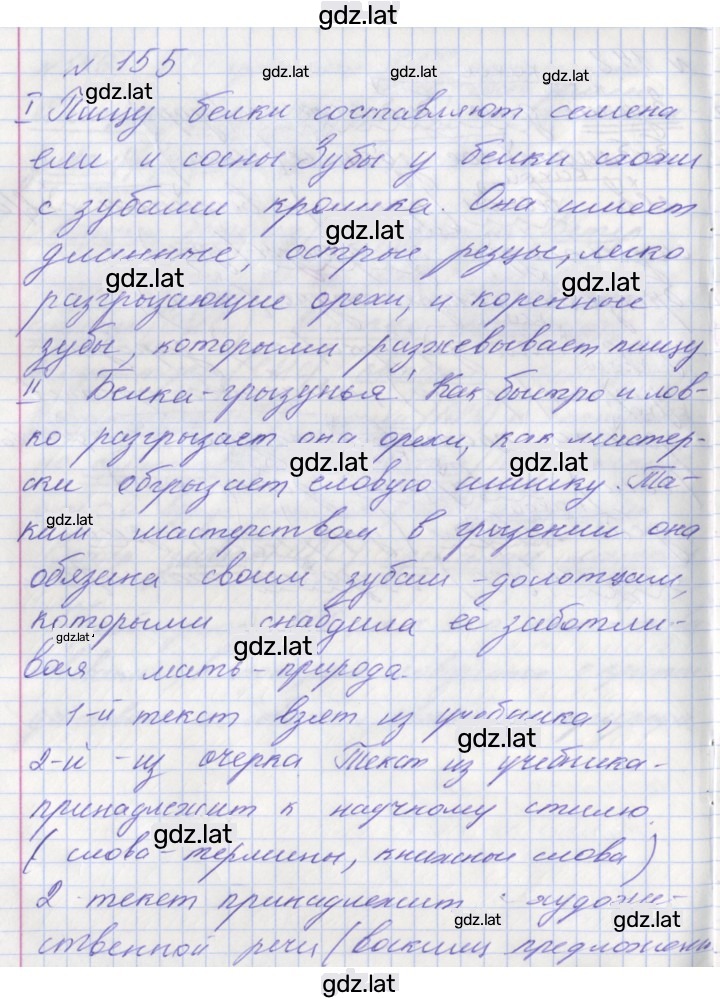 gdz.lat
№ 155
gdz.lat gdz.lat gdz.lat gdz.lat
I Пищу белки составляют семена
ели и сосны. Зубы у белки схожи
с зубами кролика. Она имеет
gdz.lat
длинные, острые резцы, легко
gdz.lat gdz.lat
разгрызающие орехи, и коренные
зубы, которыми разжевывает пищу
II Белка-грызунья! Как быстро и лов-
ко разгрызает она орехи, как мастер-
gdz.lat gdz.lat
ски обгрызает еловую шишку. Та-
gdz.lat
ким мастерством в грызении она
обязана своим зубам-долотцам,
которыми снабдила ее заботли-
gdz.lat gdz.lat
вая мать-природа.
1-й текст взят из учебника,
gdz.lat
2-й - из очерка. Текст из учебника-
принадлежит к научному стилю.
gdz.lat
(слова-термины, книжные слова)
2 текст принадлежит художе-
gdz.lat gdz.lat
ственной речи (восклиц предложени
gdz.lat